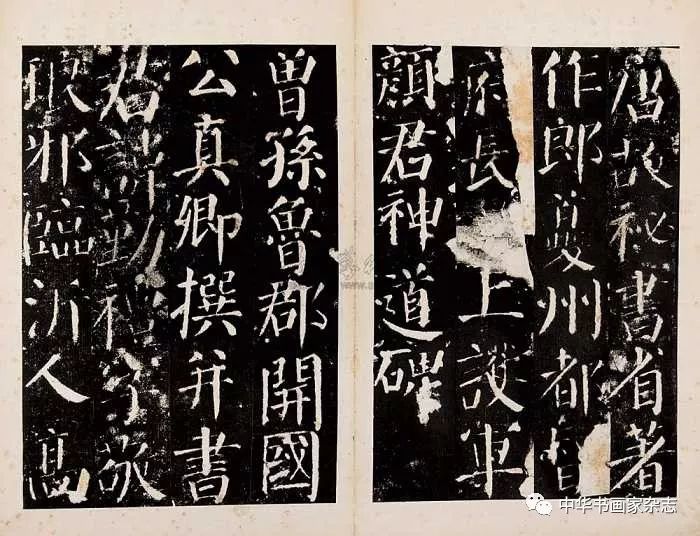 唐故秘書省著
作郎夔州都督
府長上護軍
顏君神道碑
曾孫魯郡開國
公真卿撰并書
君諱勤禮字敬
琅邪臨沂人高
中华书画家杂志